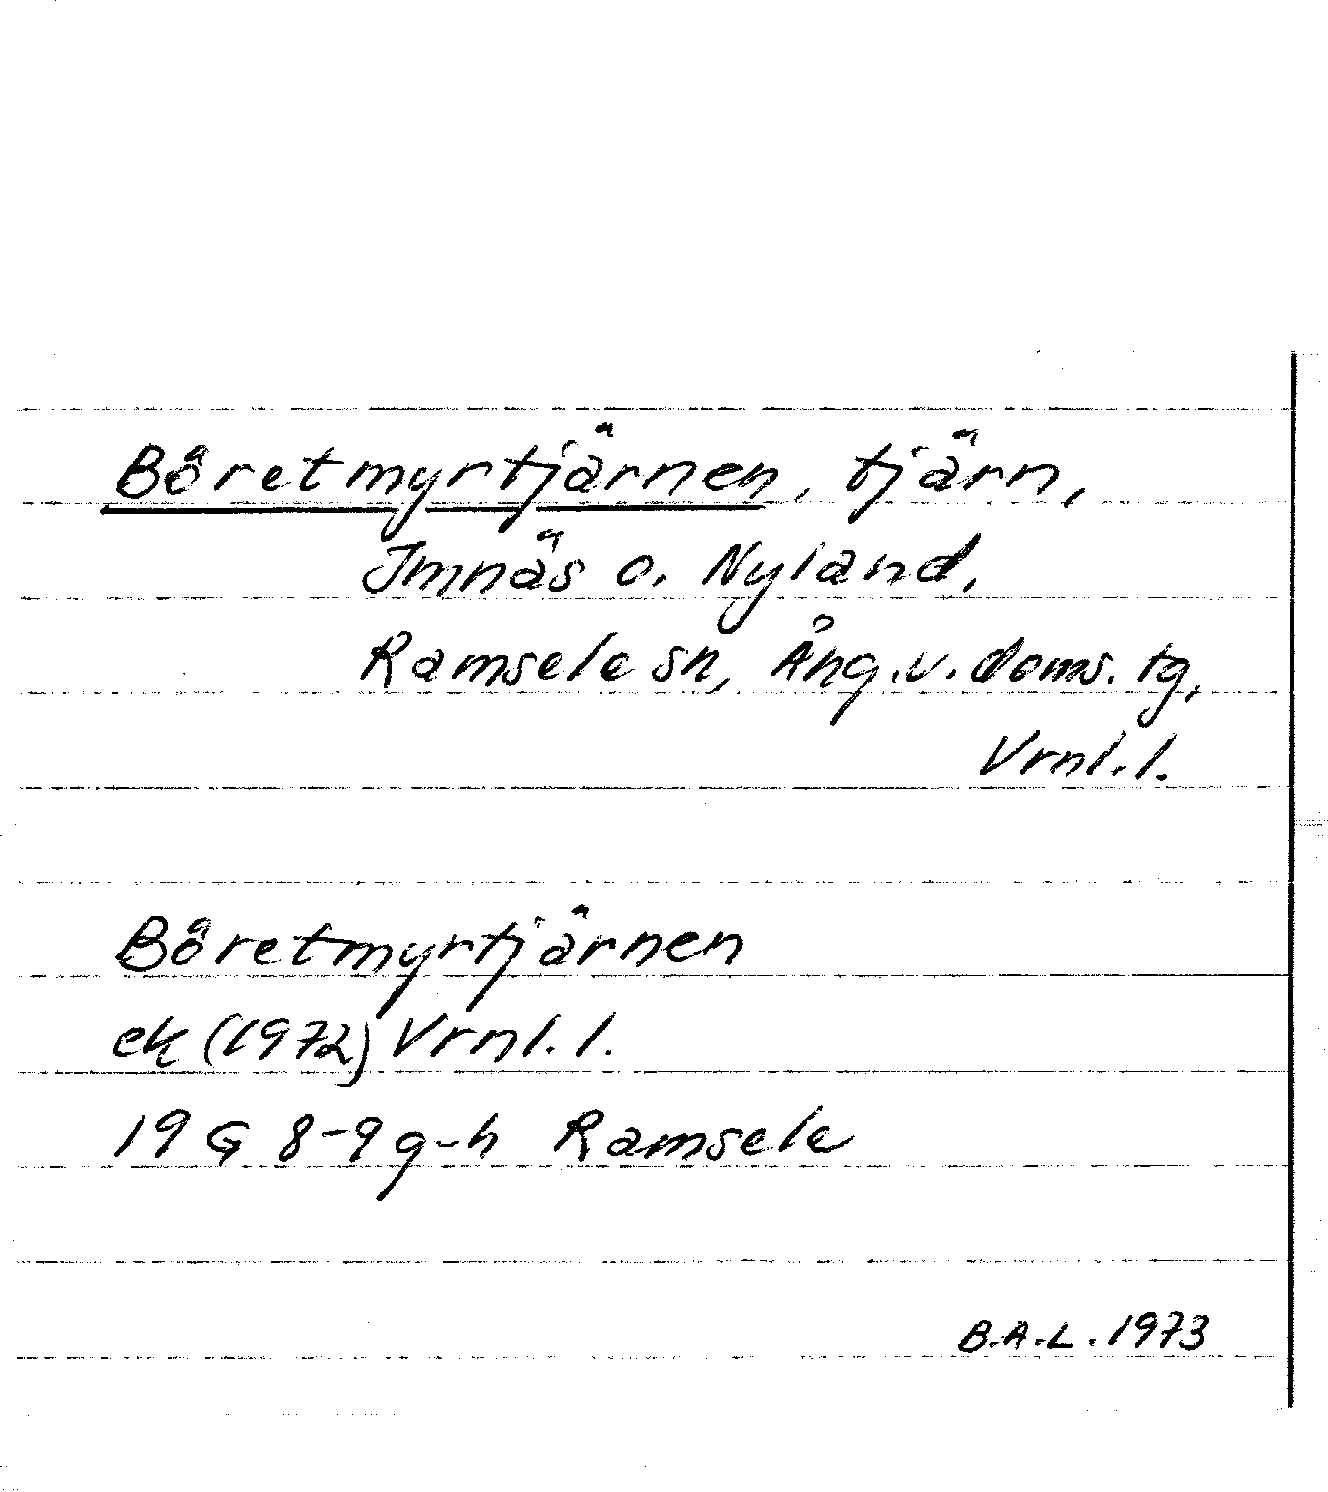 Båretmyrtjärnen, tjärn,
Imnäs o. Nyland,
Ramsele sn, Ång.v.doms.tg,
Vrnl.l.
Båretmyrtjärnen
ek (1972) Vrnl.l.
19 G 8-9 g-h Ramsele
B.A.L. 1973